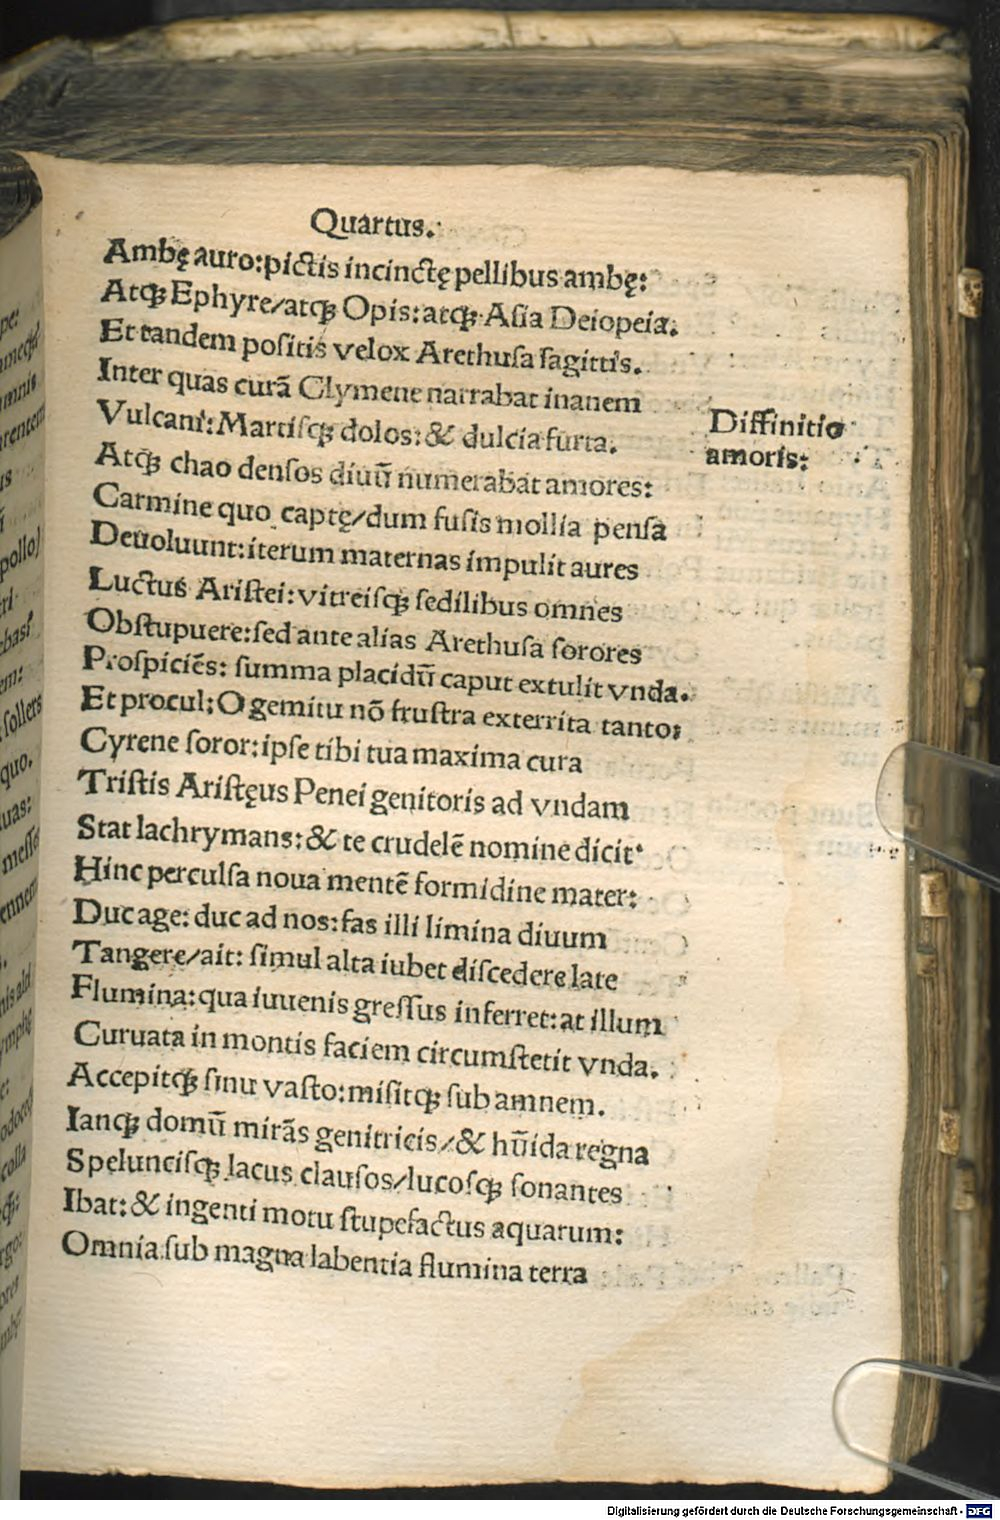 Quartus.
Ambę auro:pictis incinctę pellibus ambę:
Atqꝫ Ephyre/atqꝫ Opis:atqꝫ Asia Deiopeia.
Et tandem positis velox Arethusa sagittis.
Inter quas curā Clymene narrabat inanem
Vulcani:Martisqꝫ dolos:& dulcia furta.
Diffinitio
amoris:
Atqꝫ chao densos diuū numerabat amores:
Carmine quo captę/dum fusis mollia pensa
Deuoluunt:iterum maternas impulit aures
Luctus Aristei:vitreisqꝫ sedilibus omnes
Obstupuere:sed ante alias Arethusa sorores
Prospiciēs: summa placidū caput extulit vnda.
Et procul:O gemitu nō frustra exterrita tanto:
Cyrene soror:ipse tibi tua maxima cura
Tristis Aristęus Penei genitoris ad vndam
Stat lachrymans:& te crudelē nomine dicit.
Hinc perculsa noua mentē formidine mater:
Duc age: duc ad nos:fas illi limina diuum
Tangere/ait: simul alta iubet discedere late
Flumina:qua iuuenis gressus inferret:at illum
Curuata in montis faciem circumstetit vnda.
Accepitqꝫ sinu vasto:misitqꝫ sub amnem.
Iamqꝫ domū mirās genitricis/& hūida regna
Speluncisqꝫ lacus clausos/lucosqꝫ sonantes
Ibat:& ingenti motu stupefactus aquarum:
Omnia sub magna labentia flumina terra
Digitalisierung gefördert durch die Deutsche Forschungsgemeinschaft - DFG